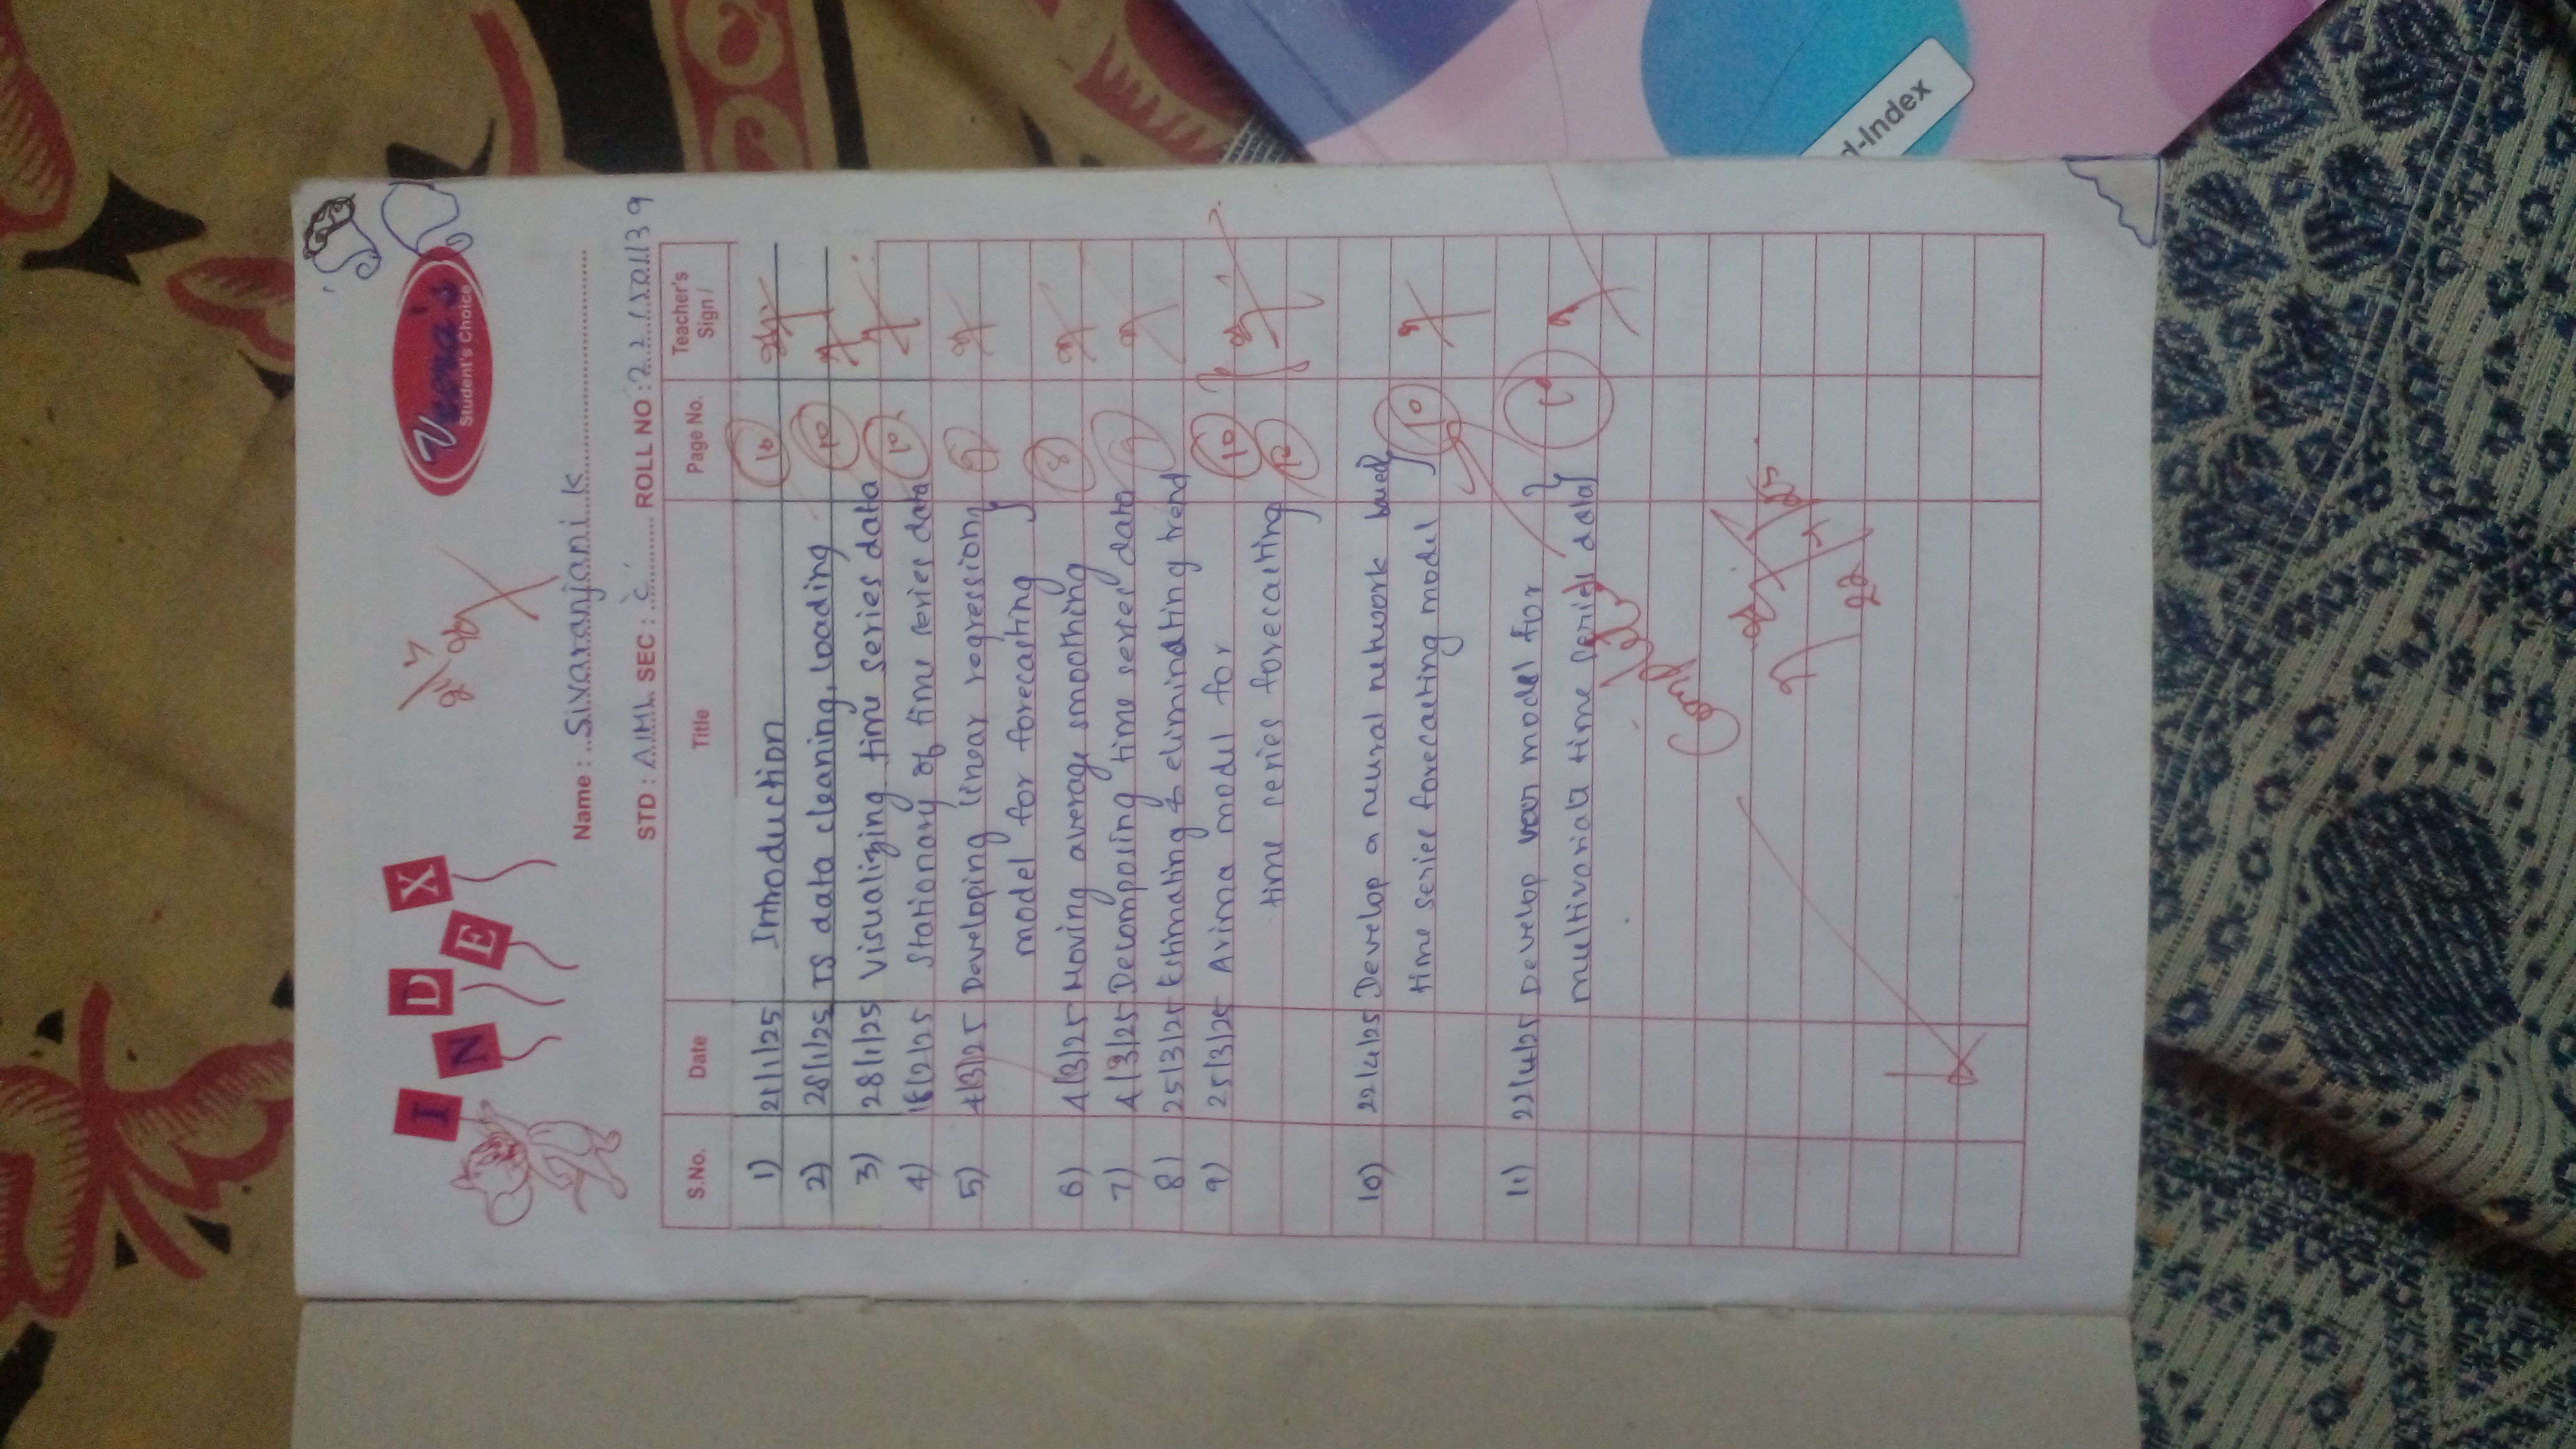 INDEX
Veena's
Student's Choice
Name : Sivaranjani K
STD : AIML SEC : C ROLL NO : 221501139
S.No. Date Title Page No. Teacher's Sign /
1) 21/1/25 Introduction 10
2) 28/1/25 TS data cleaning, loading 10
3) 28/1/25 Visualizing time series data
4) 18/2/25 Stationary of time series data 10
5) 4/3/25 Developing linear regression 9
model for forecasting
6) 4/3/25 Moving average smoothing 8
7) 4/3/25 Decomposing time series data 9
8) 25/3/25 Estimating & eliminating trend
9) 25/3/25 Arima model for 10
time series forecasting 10
10) 22/4/25 Develop a neural network based
time series forecasting model 10
11) 22/4/25 Develop model for
multivariate time series data 10
Completed
22/4/25
d-Index